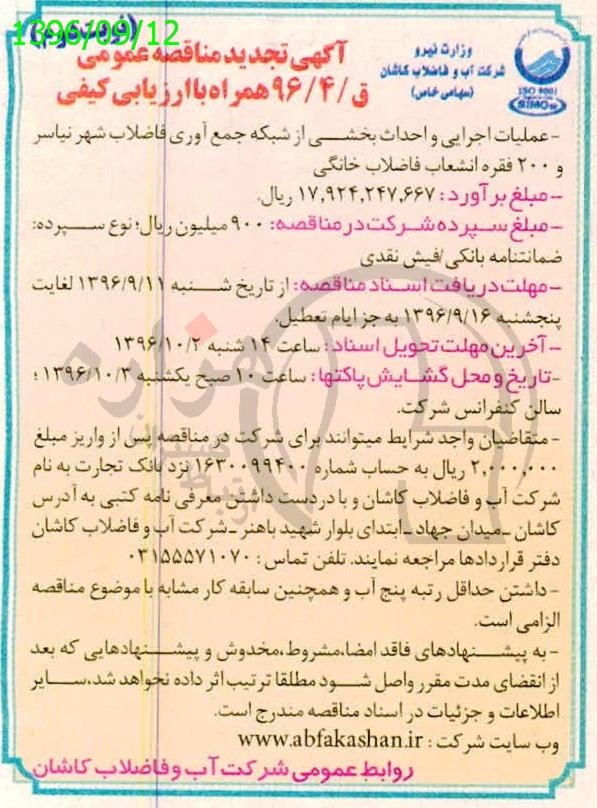 1396/09/12
(نوبت دوم)
وزارت نیرو
شرکت آب و فاضلاب کاشان
(سهامی خاص)
ISO 9001
SIMO
آگهی تجدید مناقصه عمومی
ق/۹۶/۴ همراه با ارزیابی کیفی
- عملیات اجرایی و احداث بخشی از شبکه جمع آوری فاضلاب شهر نیاسر
و ۲۰۰ فقره انشعاب فاضلاب خانگی
- مبلغ برآورد: ۱۷,۹۲۴,۲۴۷,۶۶۷ ریال.
- مبلغ سپرده شرکت در مناقصه: ۹۰۰ میلیون ریال؛ نوع سپرده:
ضمانتنامه بانکی/فیش نقدی
- مهلت دریافت اسناد مناقصه: از تاریخ شنبه ۱۳۹۶/۹/۱۱ لغایت
پنجشنبه ۱۳۹۶/۹/۱۶ به جز ایام تعطیل.
- آخرین مهلت تحویل اسناد: ساعت ۱۴ شنبه ۱۳۹۶/۱۰/۲
- تاریخ و محل گشایش پاکتها: ساعت ۱۰ صبح یکشنبه ۱۳۹۶/۱۰/۳؛
سالن کنفرانس شرکت.
- متقاضیان واجد شرایط میتوانند برای شرکت در مناقصه پس از واریز مبلغ
۲,۰۰۰,۰۰۰ ریال به حساب شماره ۱۶۳۰۰۹۹۴۰۰ نزد بانک تجارت به نام
شرکت آب و فاضلاب کاشان و با در دست داشتن معرفی نامه کتبی به آدرس
کاشان - میدان جهاد - ابتدای بلوار شهید باهنر - شرکت آب و فاضلاب کاشان
دفتر قراردادها مراجعه نمایند. تلفن تماس: ۰۳۱۵۵۵۷۱۰۷۰
- داشتن حداقل رتبه پنج آب و همچنین سابقه کار مشابه با موضوع مناقصه
الزامی است.
- به پیشنهادهای فاقد امضا،مشروط،مخدوش و پیشنهادهایی که بعد
از انقضای مدت مقرر واصل شود مطلقا ترتیب اثر داده نخواهد شد،سایر
اطلاعات و جزئیات در اسناد مناقصه مندرج است.
وب سایت شرکت: www.abfakashan.ir
روابط عمومی شرکت آب و فاضلاب کاشان
هزاره